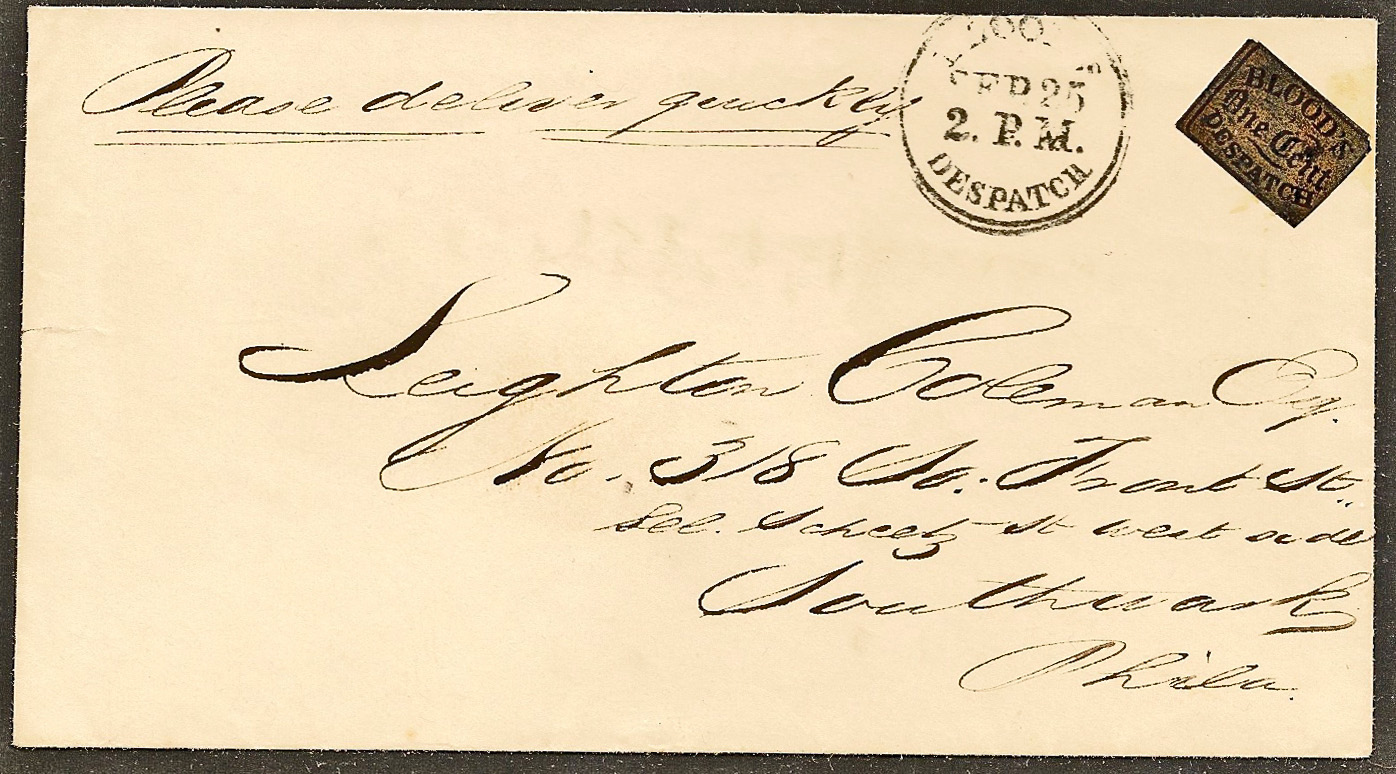 Please deliver quickly
BLOOD'S
SEP 25
2. P.M.
DESPATCH
BLOOD'S
One Cent
DESPATCH
Leighton Coleman Esq.
No. 318 So. Front St.
bel. Scheetz St west side
Southwark
Phila.